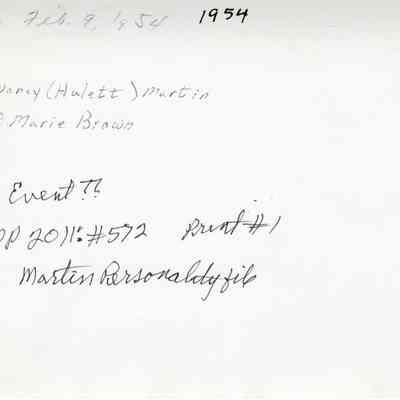 Feb. 9, 1954 1954
Nancy (Hulett) Martin
Marie Brown
Event??
2011: #572 Print #1
Martin Personality file